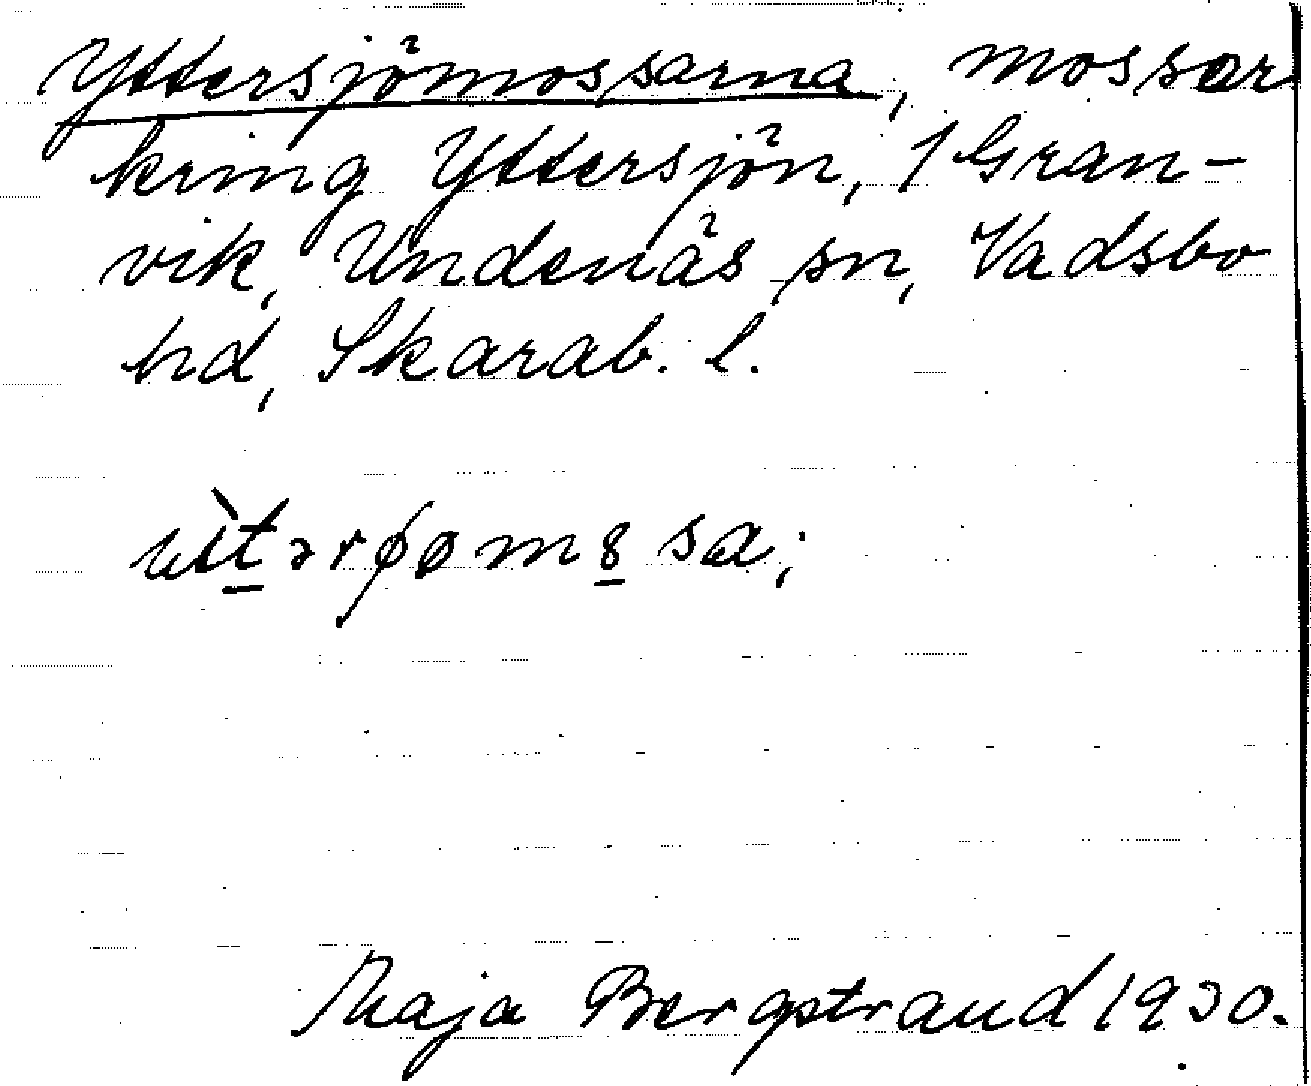 Yttersjömossarna, mossar
kring Yttersjön, 1 Gran-
vik, Undenäs sn, Vadsbo
hd, Skarab. l.
Maja Bergstrand 1930.